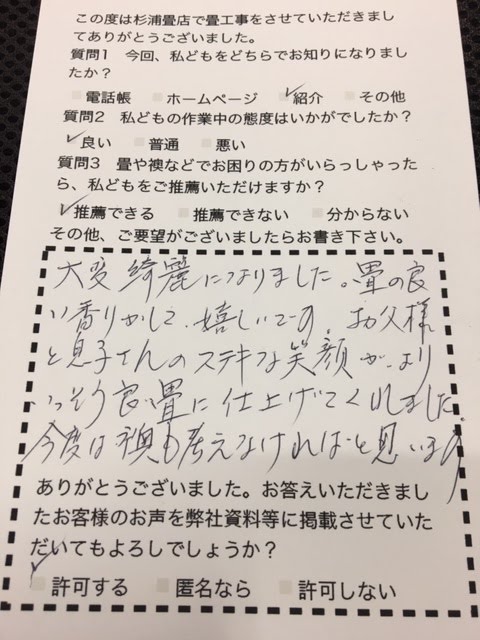 この度は杉浦畳店で畳工事をさせていただきまし
てありがとうございました。
質問1 今回、私どもをどちらでお知りになりまし
たか？
電話帳 ホームページ ✓紹介 その他
質問2 私どもの作業中の態度はいかがでしたか？
✓良い 普通 悪い
質問3 畳や襖などでお困りの方がいらっしゃった
ら、私どもをご推薦いただけますか？
✓推薦できる 推薦できない 分からない
その他、ご要望がございましたらお書き下さい。
大変綺麗になりました。畳の良
い香りがして、嬉しいです。お父様
と息子さんのステキな笑顔が、より
いっそう良い畳に仕上げてくれました。
今度は襖も考えなければと思います
ありがとうございました。お答えいただきまし
たお客様のお声を弊社資料等に掲載させていた
だいてもよろしでしょうか？
✓許可する 匿名なら 許可しない